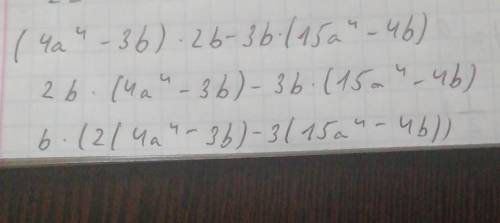 (4a⁴ - 3b) · 2b - 3b · (15a⁴ - 4b)
2b · (4a⁴ - 3b) - 3b · (15a⁴ - 4b)
b · (2(4a⁴ - 3b) - 3(15a⁴ - 4b))